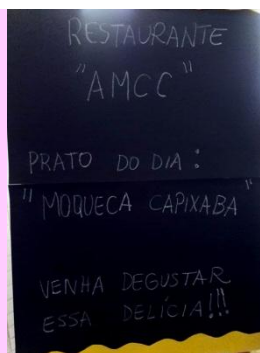 RESTAURANTE
"AMCC"
PRATO DO DIA:
"MOQUECA CAPIXABA"
VENHA DEGUSTAR
ESSA DELÍCIA!!!